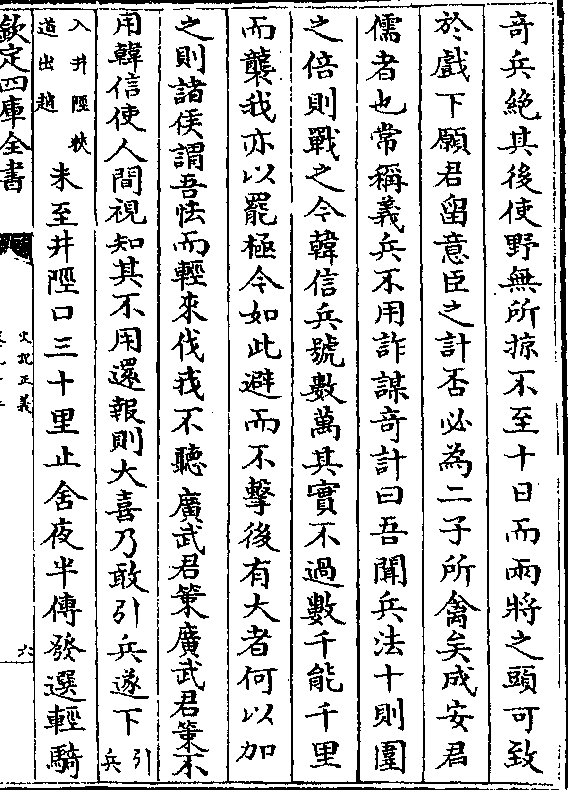 奇兵絶其後使野無所掠不至十日而兩將之頭可致
於戲下願君留意臣之計否必為二子所禽矣成安君
儒者也常稱義兵不用詐謀奇計曰吾聞兵法十則圍
之倍則戰之今韓信兵號數萬其實不過數千能千里
而襲我亦以罷極今如此避而不擊後有大者何以加
之則諸侯謂吾怯而輕來伐我不聽廣武君策廣武君策不
用韓信使人間視知其不用還報則大喜乃敢引兵遂下引兵
入井陘狹道出趙未至井陘口三十里止舍夜半傳發選輕騎
欽定四庫全書
史記正義
六